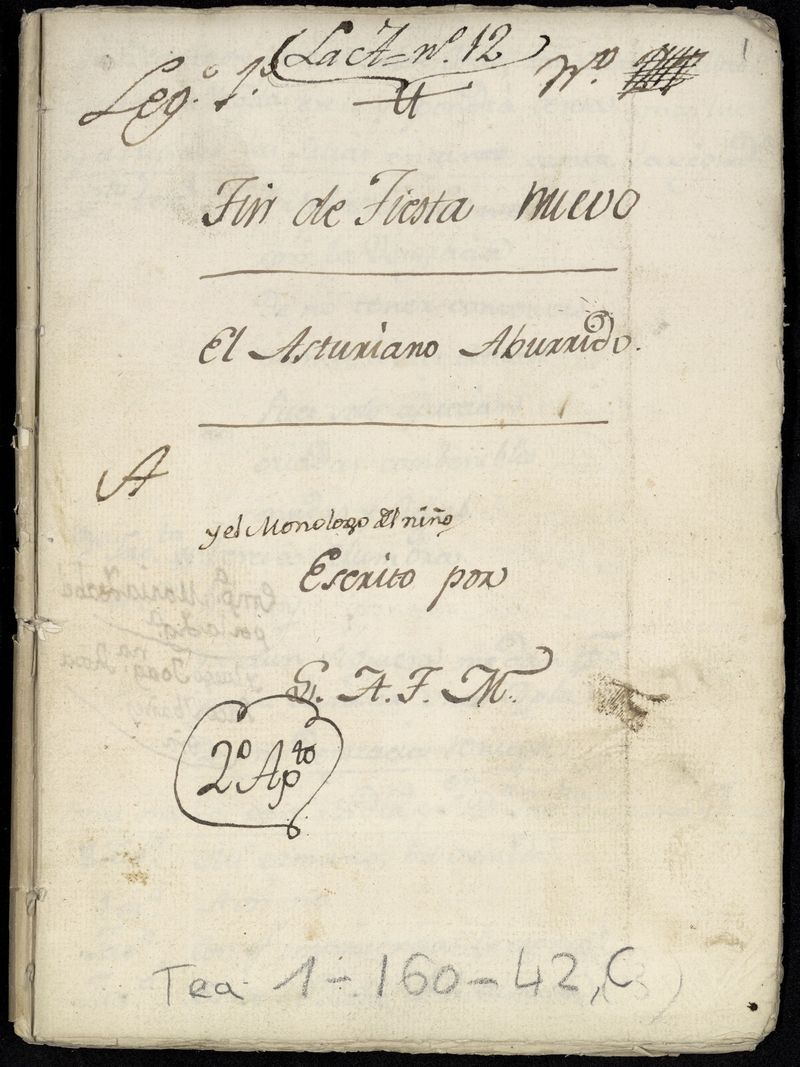 1
Leg.º 1.º La A = nº. 12 Nº.
Fin de Fiesta nuevo
El Asturiano Aburrido.
A
y el Monologo del niño
Escrito por
E. A. F. M.
2º Apto
Tea 1-160-42, C